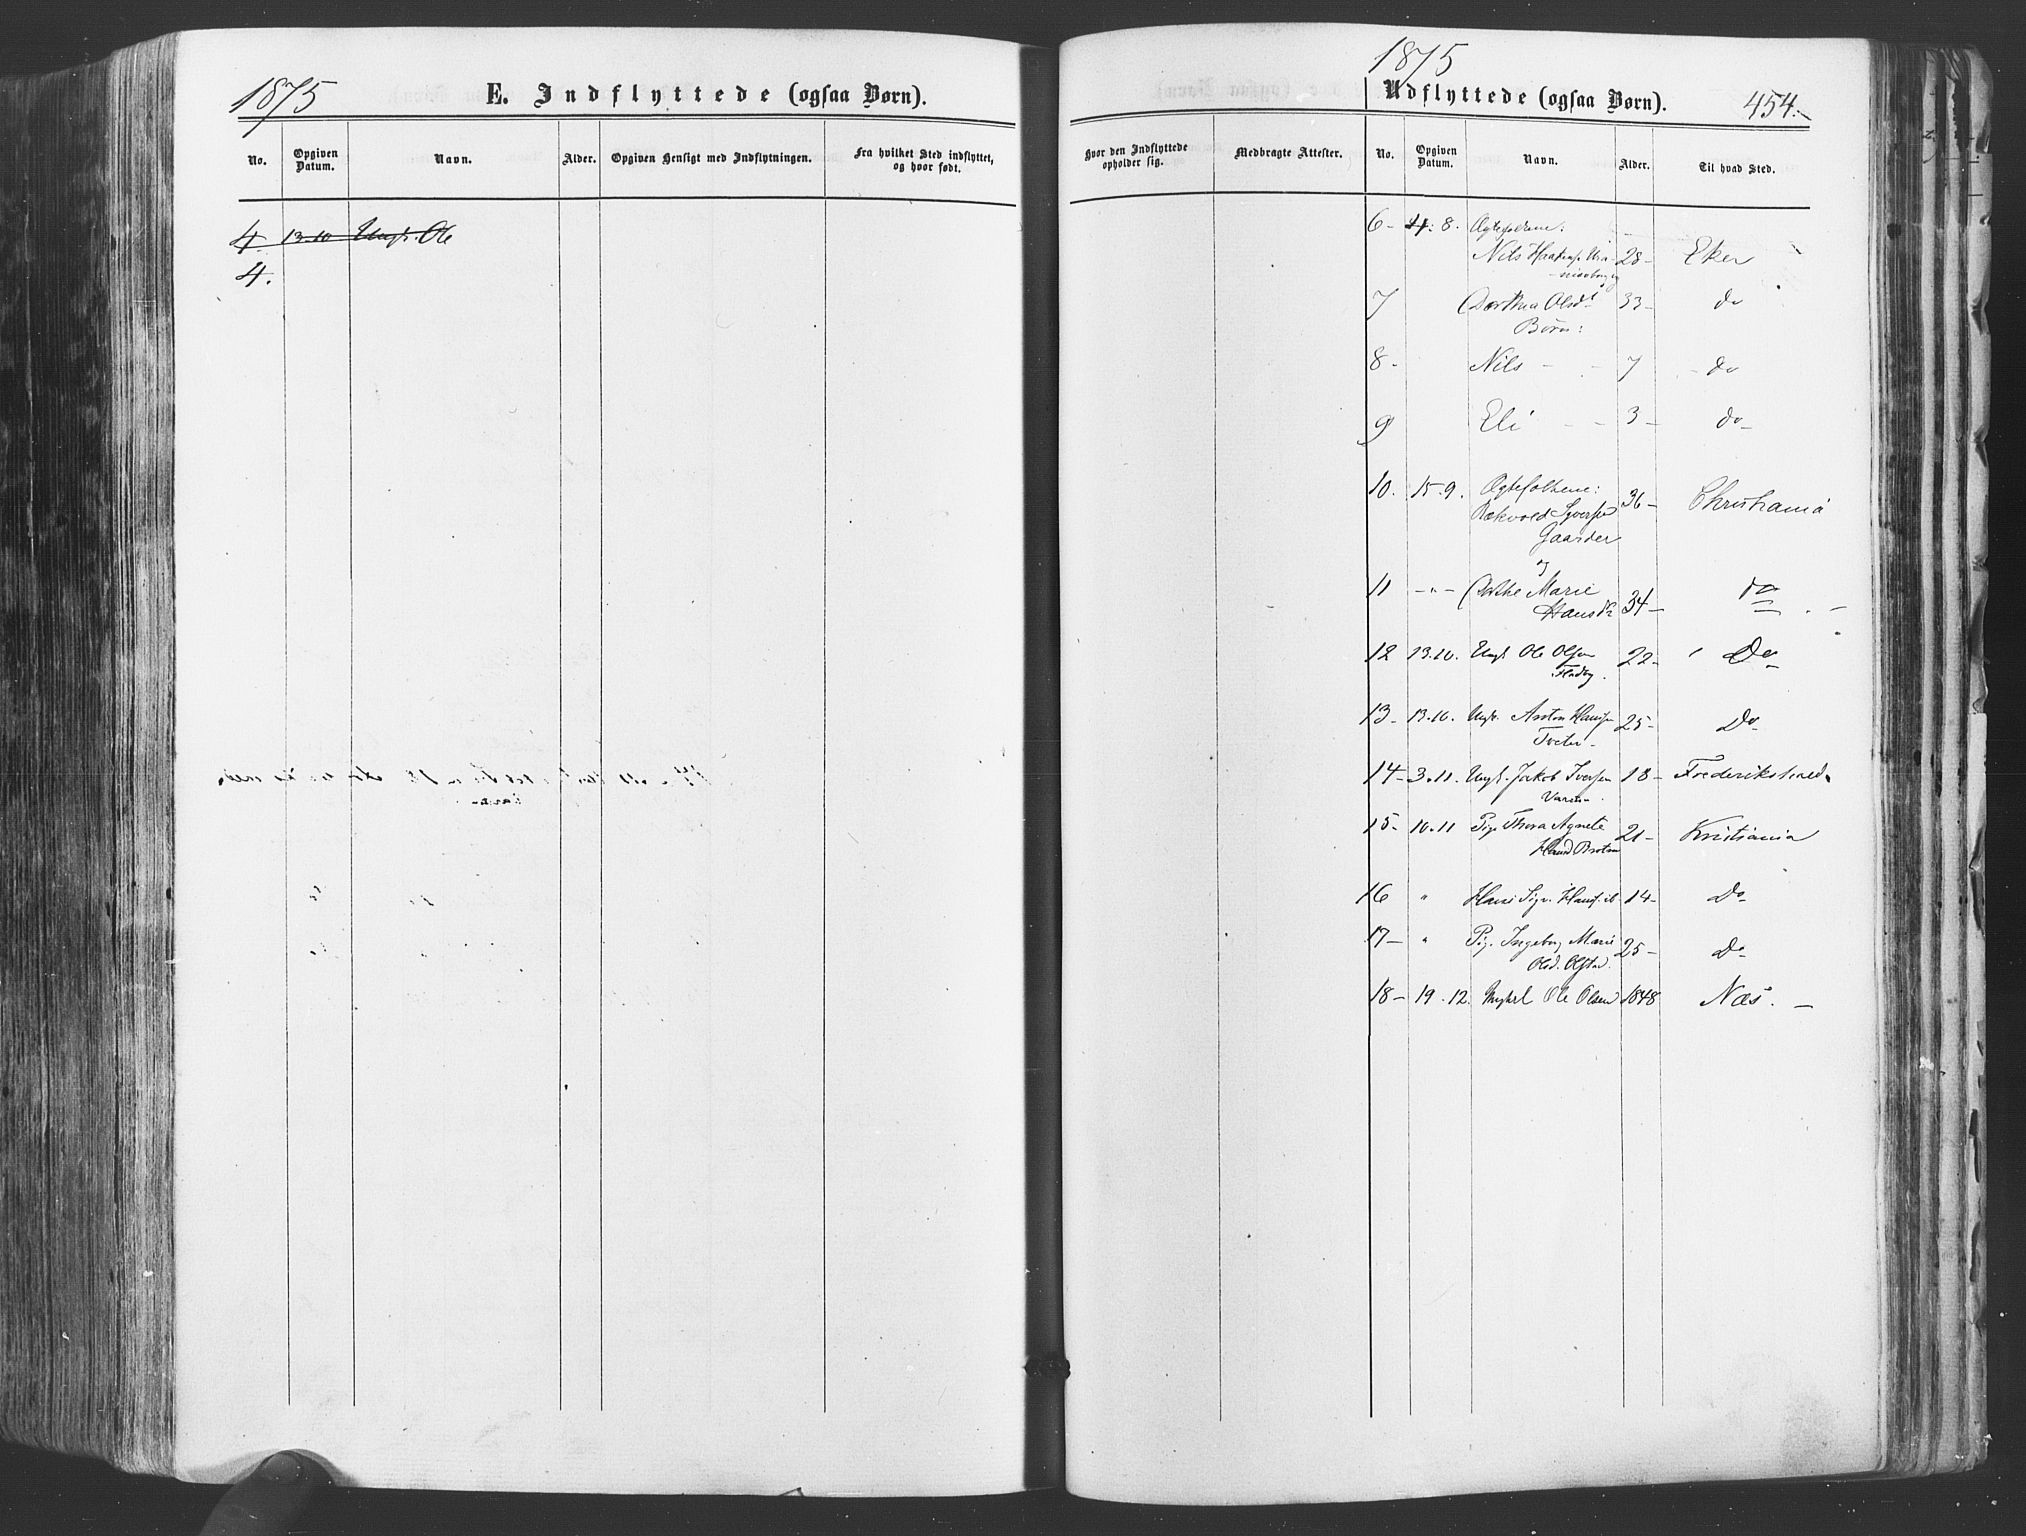 1875
E. Indflyttede (ogsaa Børn).
No. Opgiven Datum. Navn. Alder. Opgiven Hensigt med Indflytningen. Fra hvilket Sted indflyttet, og hvor født.
4. 13-10 Ungk. Ole
4.
1875
Udflyttede (ogsaa Børn). 454.
Hvor den Indflyttede opholder sig. Medbragte Attester. No. Opgiven Datum. Navn. Alder. Til hvad Sted.
6- 4. 8.
Nils 28- Eker
7 Dorthea Olsdt 33- do
Børn:
8- Nils - - 7 - do
9 Eli - - 3- do-
10. 15.9. Ægtefolkene: 36- Christiania
Gaarder
og
11 -"- Marie
Hansdt 34- do
12 13.10. Ungk. Ole Olsen 22- Do
13- 13.10. Ungk. Anton Hansen 25- Do
Tveter-
14- 3.11. Ungk. Jakob Iversen 18- Frederikshald.
15- 10.11 Pige Thora Agnete
Hansd Braten 21- Kristiania
16 " 14- Do
17- " Pig. Ingeborg Marie
Olsd. Olstad. 25- Do
18- 19.12. Ungkrl Ole Olsen 1848 Næs. -